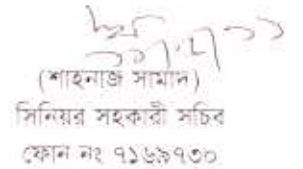 (শাহনাজ সামাদ)
সিনিয়র সহকারী সচিব
ফোন নং ৭১৬৯৭৩০